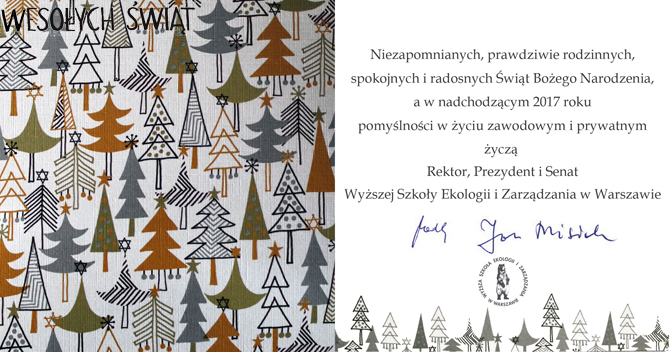 WESOŁYCH ŚWIĄT
Niezapomnianych, prawdziwie rodzinnych,
spokojnych i radosnych Świąt Bożego Narodzenia,
a w nadchodzącym 2017 roku
pomyślności w życiu zawodowym i prywatnym
życzą
Rektor, Prezydent i Senat
Wyższej Szkoły Ekologii i Zarządzania w Warszawie
Jan Misiak
WYŻSZA SZKOŁA EKOLOGII I ZARZĄDZANIA
W WARSZAWIE